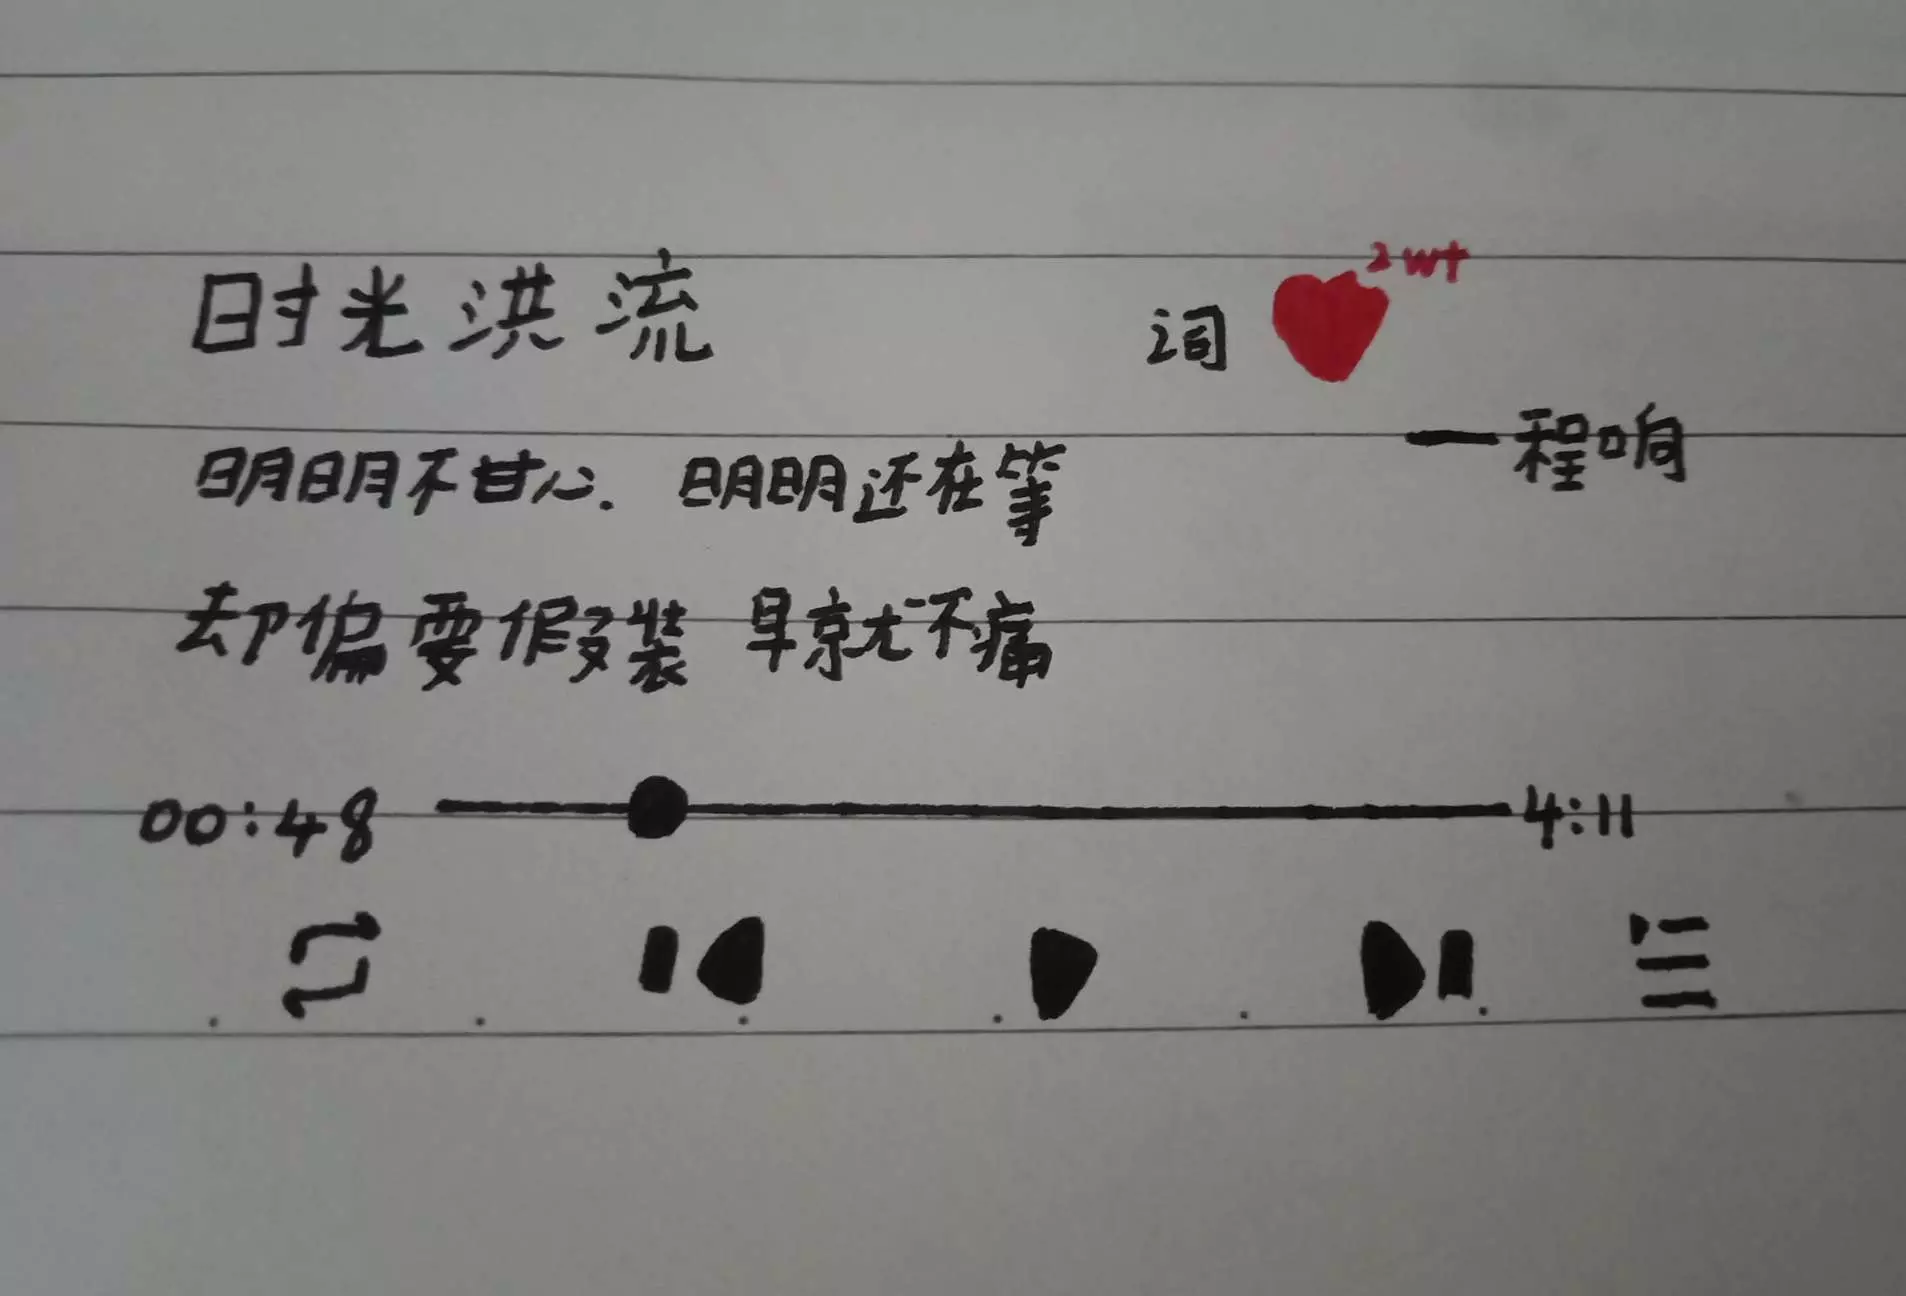 时光洪流 词 2w+
一程响
明明不甘心. 明明还在等
却偏要假装 早就不痛
00:48 4:11